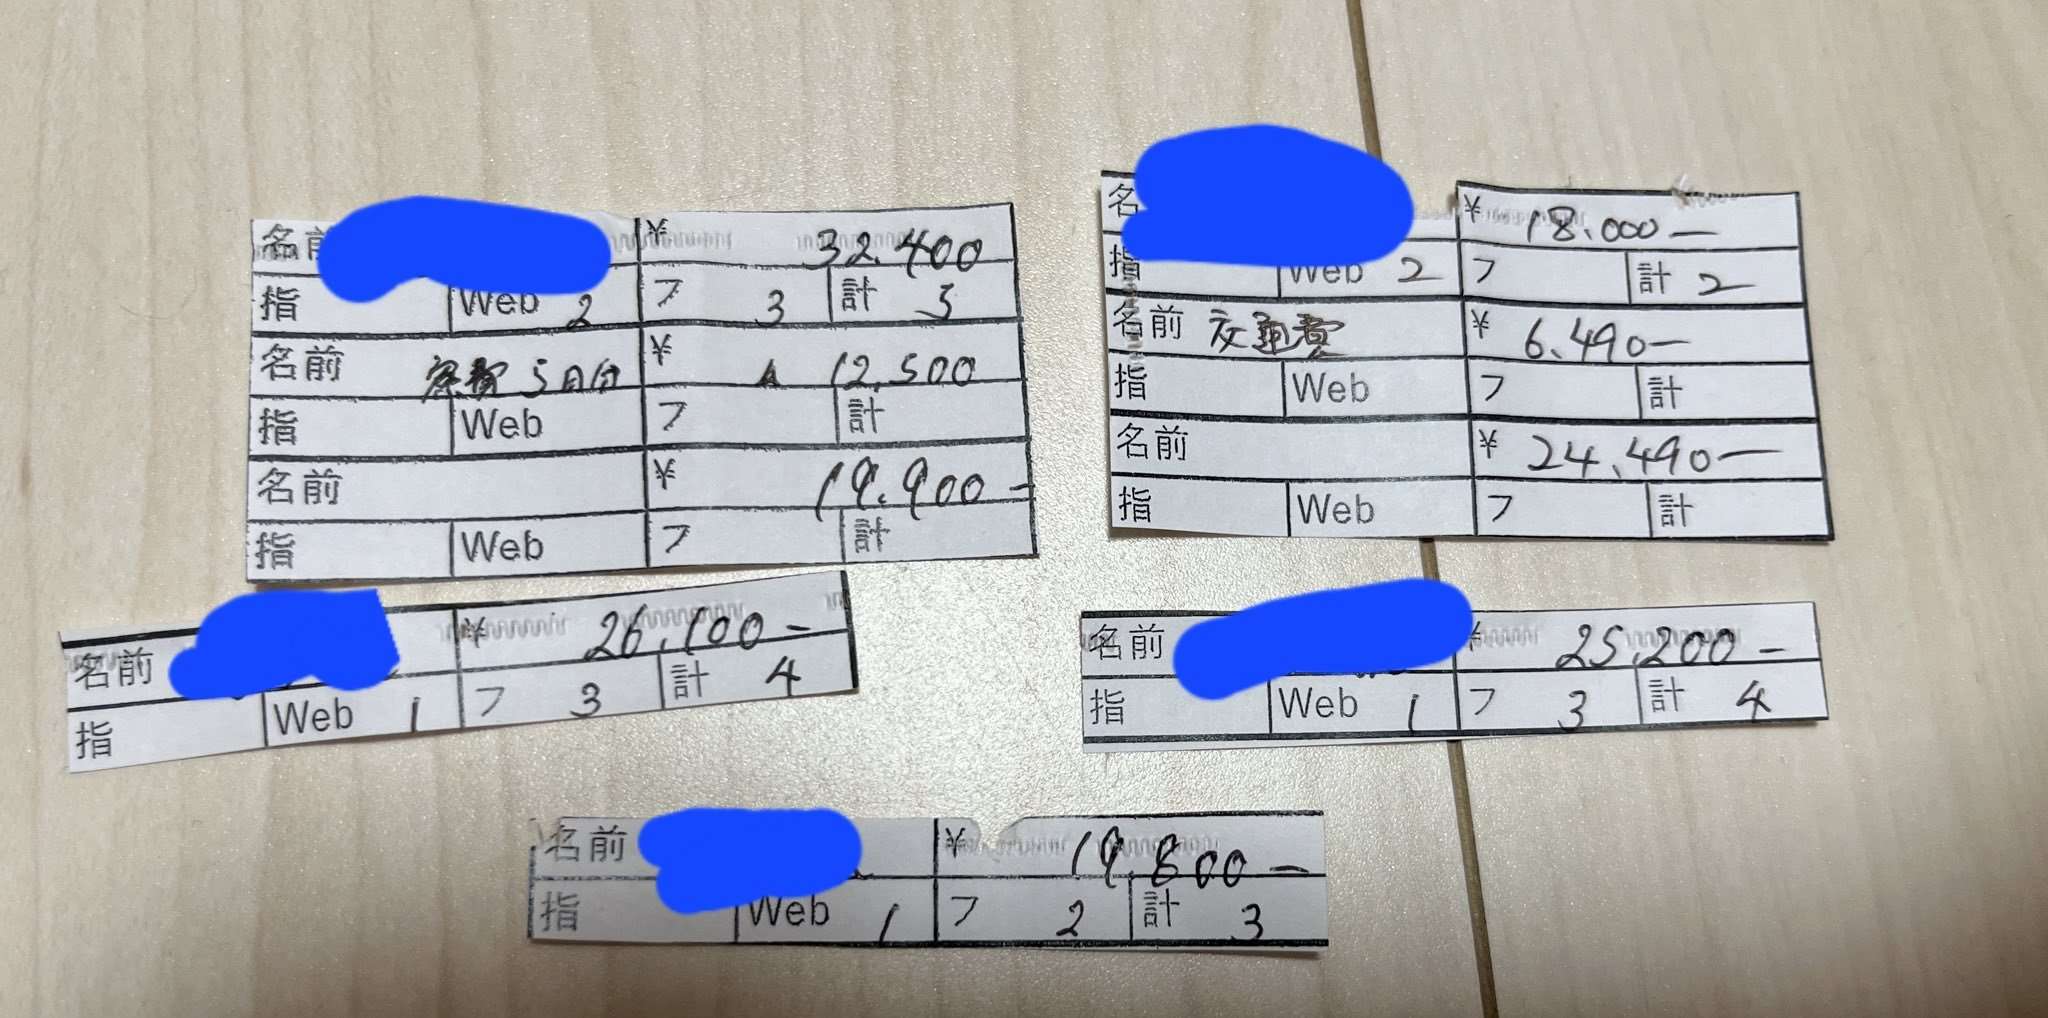 名前 ¥ 32.400
指 Web 2 フ 3 計 5
名前 寮費 5日分 ¥ ▲ 12.500
指 Web フ 計
名前 ¥ 19.900-
指 Web フ 計
名 ¥ 18.000-
指 Web 2 フ 計 2
名前 交通費 ¥ 6.490-
指 Web フ 計
名前 ¥ 24.490-
指 Web フ 計
名前 ¥ 26,100-
指 Web 1 フ 3 計 4
名前 ¥ 25,200-
指 Web 1 フ 3 計 4
名前 ¥ 19,800-
指 Web 1 フ 2 計 3